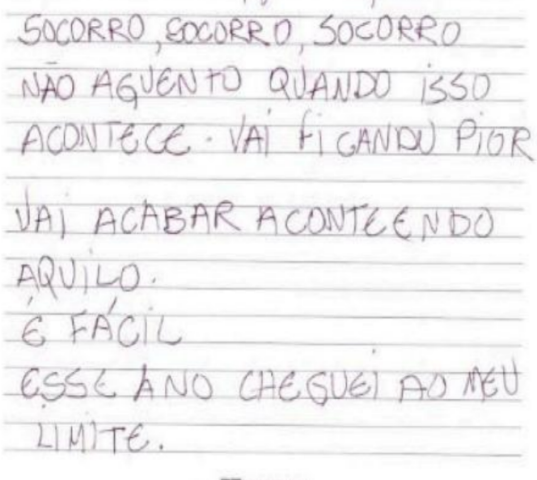 SOCORRO, SOCORRO, SOCORRO
NÃO AGUENTO QUANDO ISSO
ACONTECE. VAI FICANDO PIOR
VAI ACABAR ACONTEENDO
AQUILO.
É FÁCIL
ESSE ANO CHEGUEI AO MEU
LIMITE.